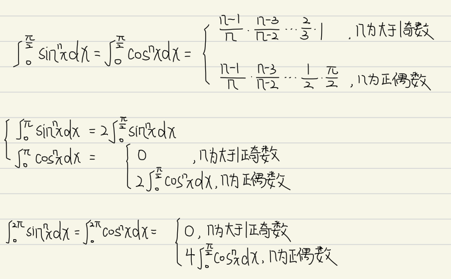 ∫₀^(π/2) sinⁿxdx = ∫₀^(π/2) cosⁿxdx = { (n-1)/n · (n-3)/(n-2) ··· 2/3 · 1 , n为大于1奇数
(n-1)/n · (n-3)/(n-2) ··· 1/2 · π/2 , n为正偶数
{ ∫₀^π sinⁿxdx = 2∫₀^(π/2) sinⁿxdx
∫₀^π cosⁿxdx = { 0 , n为大于1正奇数
2∫₀^(π/2) cosⁿxdx, n为正偶数
∫₀^(2π) sinⁿxdx = ∫₀^(2π) cosⁿxdx = { 0, n为大于1正奇数
4∫₀^(π/2) cosⁿxdx, n为正偶数